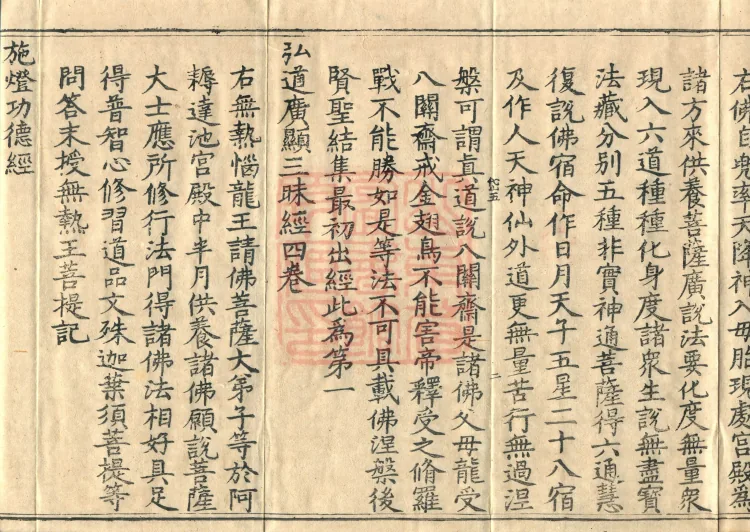 右佛自兜率天降神入母胎現處宮殿為
諸方來供養菩薩廣說法要化度無量衆
現入六道種種化身度諸衆生說無盡寶
法藏分別五種非實神通菩薩得六通慧
復說佛宿命作日月天子五星二十八宿
及作人天神仙外道更無量苦行無過涅
槃可謂真道說八關齋是諸佛父母龍受
八關齋戒金翅鳥不能害帝釋受之脩羅
戰不能勝如是等法不可具載佛涅槃後
賢聖結集最初出經此為第一
弘道廣顯三昧經四卷
右無熱惱龍王請佛菩薩大弟子等於阿
耨達池宮殿中半月供養諸佛願說菩薩
大士應所修行法門得諸佛法相好具足
得普智心修習道品文殊迦葉須菩提等
問答末授無熱王菩提記
施燈功德經